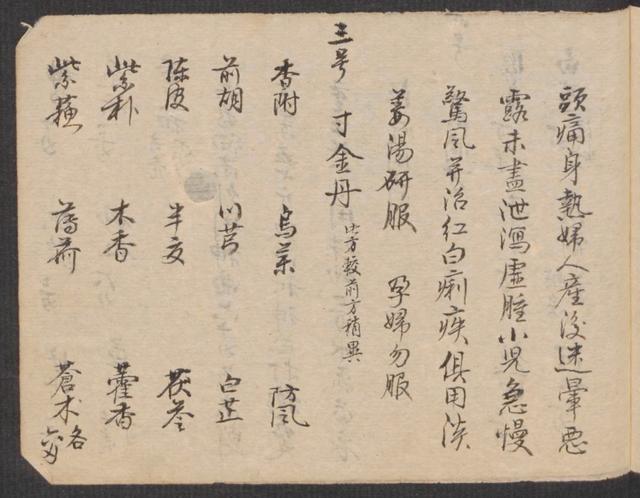 頭痛身熱婦人産後迷暈惡
露未盡泄瀉虛腫小児急慢
驚風并治紅白痢疾俱用淡
姜湯研服 孕婦勿服
三号 寸金丹 此方較前方稍異
香附 烏藥 防風
前胡 川芎 白芷
陳皮 半夏 茯苓
紫朴 木香 藿香
紫蘓 薄荷 蒼术各